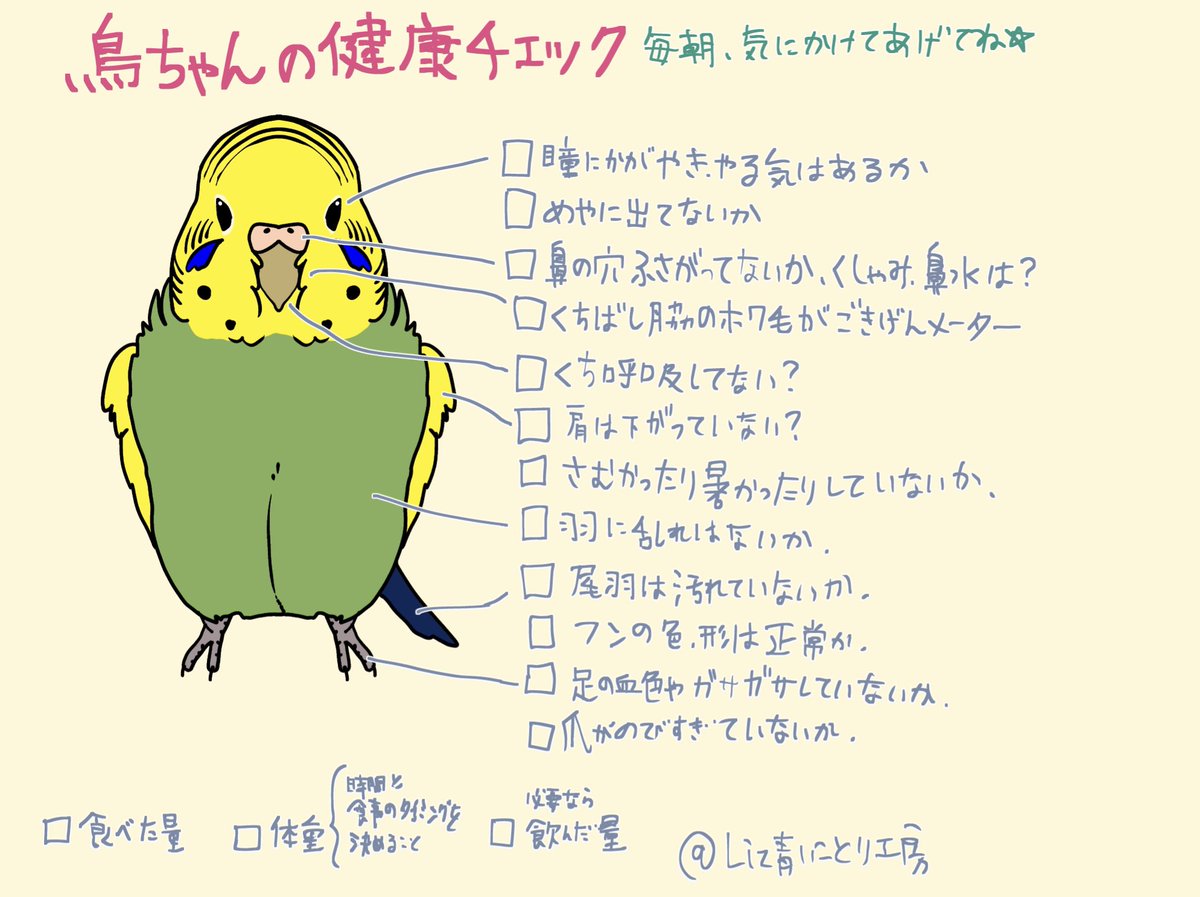 鳥ちゃんの健康チェック 毎朝、気にかけてあげてね☆
□瞳にかがやき、やる気はあるか
□めやに出てないか
□鼻の穴ふさがってないか、くしゃみ、鼻水は?
□くちばし脇のホワ毛がごきげんメーター
□くち呼吸してない?
□肩は下がっていない?
□さむかったり暑かったりしていないか、
□羽に乱れはないか.
□尾羽は汚れていないか.
□フンの色、形は正常か.
□足の血色やガサガサしていないか.
□爪がのびすぎていないか.
□食べた量
□体重
時間と
食事のタイミングを
決めること
必要なら
□飲んだ量
@Lit青いことり工房